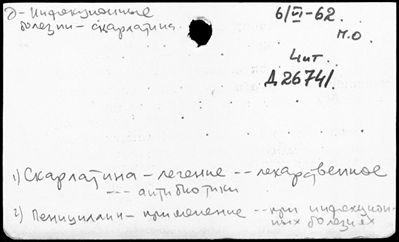 д - Инфекционные
болезни - скарлатина.
6/VI-62.
м.о
Чит.
Д26741.
1) Скарлатина - лечение -- лекарственное
--- антибиотики
2) Пенициллин - применение -- при инфекцион-
ных болезнях